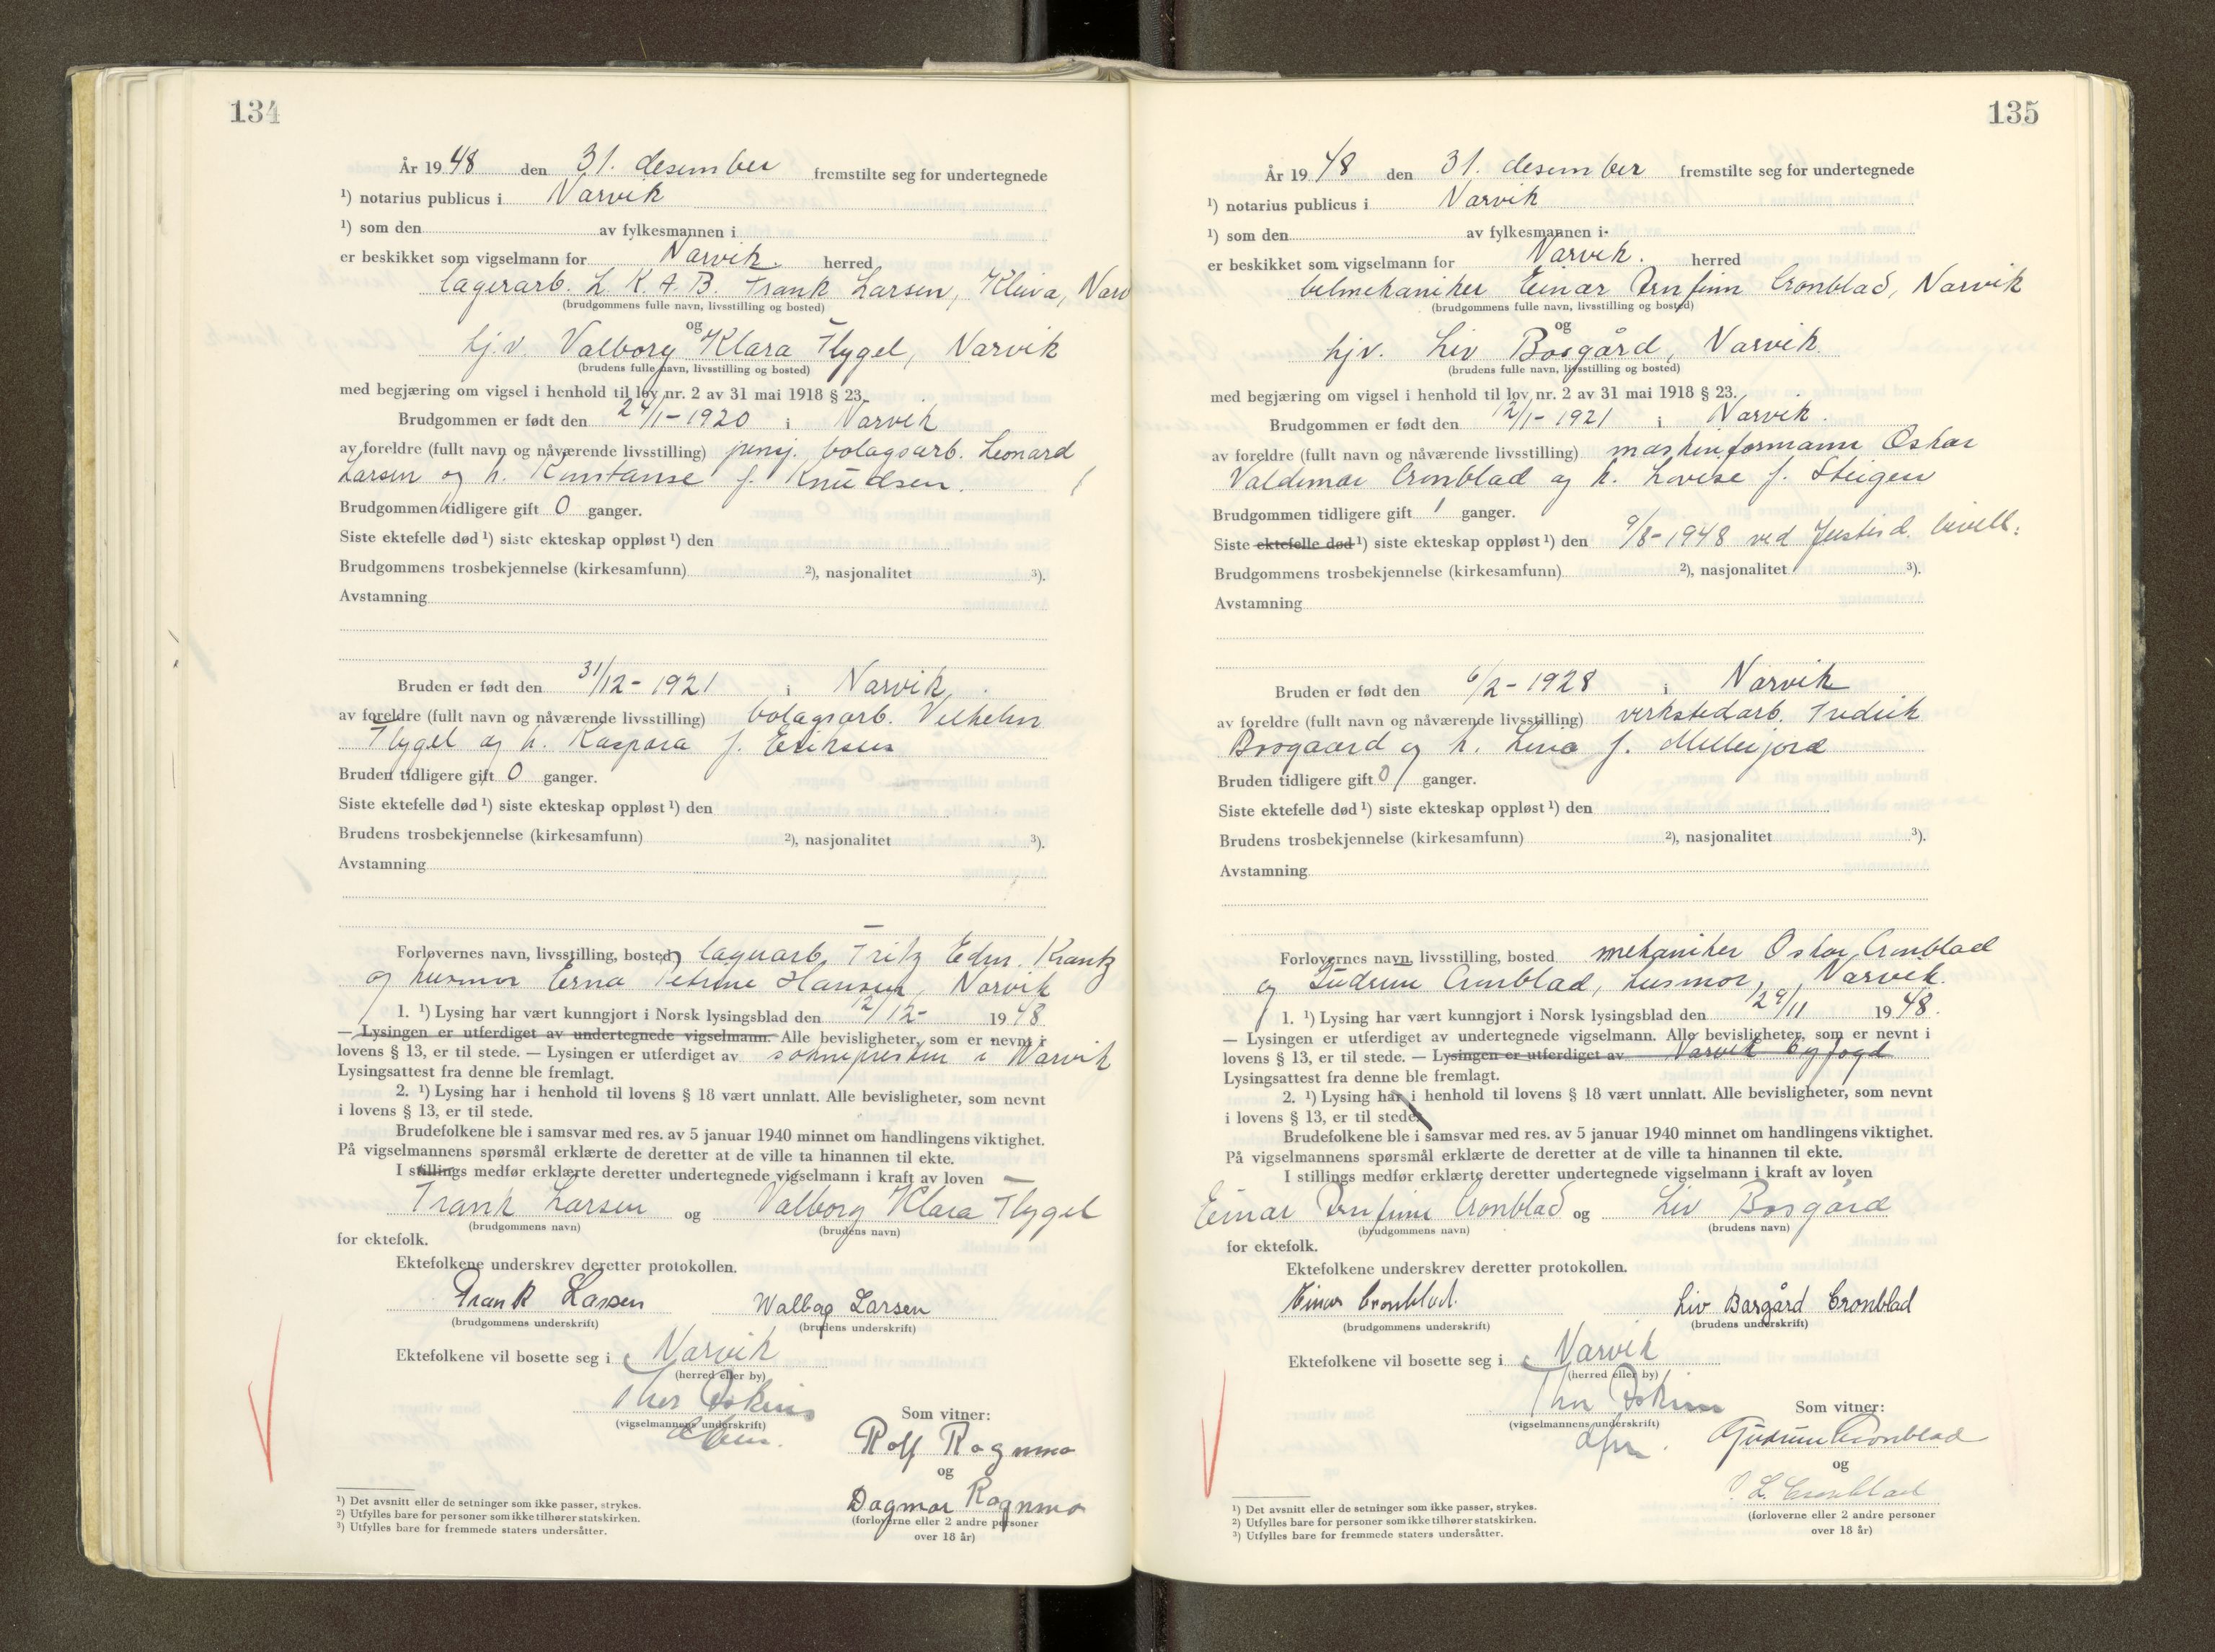 134
År 1948 den 31. desember fremstilte seg for undertegnede
¹) notarius publicus i Narvik
¹) som den av fylkesmannen i
er beskikket som vigselmann for Narvik. herred
lagerarb. L. K. A. B. Frank Larsen, Kleiva, Narv
(brudgommens fulle navn, livsstilling og bosted)
og
hj.v. Valborg Klara Flygel, Narvik
(brudens fulle navn, livsstilling og bosted)
med begjæring om vigsel i henhold til lov nr. 2 av 31 mai 1918 § 23.
Brudgommen er født den 24/1-1920 i Narvik
av foreldre (fullt navn og nåværende livsstilling) pensj. bolagsarb. Leonard
Larsen og h. Konstanse f. Knudsen.
Brudgommen tidligere gift 0 ganger.
Siste ektefelle død ¹) siste ekteskap oppløst ¹) den
Brudgommens trosbekjennelse (kirkesamfunn) ²), nasjonalitet ³).
Avstamning
Bruden er født den 31/12-1921 i Narvik.
av foreldre (fullt navn og nåværende livsstilling) bolagsarb. Vilhelm
Flygel og h. Kaspara f. Eriksen
Bruden tidligere gift 0 ganger.
Siste ektefelle død ¹) siste ekteskap oppløst ¹) den
Brudens trosbekjennelse (kirkesamfunn) ²), nasjonalitet ³).
Avstamning
Forlovernes navn, livsstilling, bosted lagerarb. Fritz Edm. Krantz
og husmor Erna Petrine Hansen, Narvik
1. ¹) Lysing har vært kunngjort i Norsk lysingsblad den 12/12- 1948
— Lysingen er utferdiget av undertegnede vigselmann. Alle bevisligheter, som er nevnt i
lovens § 13, er til stede. — Lysingen er utferdiget av soknepresten i Narvik
Lysingsattest fra denne ble fremlagt.
2. ¹) Lysing har i henhold til lovens § 18 vært unnlatt. Alle bevisligheter, som nevnt
i lovens § 13, er til stede.
Brudefolkene ble i samsvar med res. av 5 januar 1940 minnet om handlingens viktighet.
På vigselmannens spørsmål erklærte de deretter at de ville ta hinannen til ekte.
I stillings medfør erklærte deretter undertegnede vigselmann i kraft av loven
Frank Larsen og Valborg Klara Flygel
(brudgommens navn) (brudens navn)
for ektefolk.
Ektefolkene underskrev deretter protokollen.
Frank Larsen Walborg Larsen
(brudgommens underskrift) (brudens underskrift)
Ektefolkene vil bosette seg i Narvik
(herred eller by)
Thor
(vigselmannens underskrift) Som vitner:
Rolf Ragnmo
og
Dagmar Ragnmo
(forloverne eller 2 andre personer
over 18 år)
¹) Det avsnitt eller de setninger som ikke passer, strykes.
²) Utfylles bare for personer som ikke tilhører statskirken.
³) Utfylles bare for fremmede staters undersåtter.
135
År 1948 den 31. desember fremstilte seg for undertegnede
¹) notarius publicus i Narvik
¹) som den av fylkesmannen i
er beskikket som vigselmann for Narvik. herred
bilmekaniker Einar Arnfinn Cronblad, Narvik
(brudgommens fulle navn, livsstilling og bosted)
og
hjv. Liv Bosgård, Narvik.
(brudens fulle navn, livsstilling og bosted)
med begjæring om vigsel i henhold til lov nr. 2 av 31 mai 1918 § 23.
Brudgommen er født den 12/1-1921 i Narvik.
av foreldre (fullt navn og nåværende livsstilling) maskinformann Oskar
Valdemar Cronblad og h. Lovise f. Steigen
Brudgommen tidligere gift 1 ganger.
Siste ektefelle død ¹) siste ekteskap oppløst ¹) den 9/8-1948 ved Justisd. bevill.
Brudgommens trosbekjennelse (kirkesamfunn) ²), nasjonalitet ³).
Avstamning
Bruden er født den 6/2-1928 i Narvik
av foreldre (fullt navn og nåværende livsstilling) verkstedarb. Fredrik
Bosgaard og h. Lina f.
Bruden tidligere gift 0 ganger.
Siste ektefelle død ¹) siste ekteskap oppløst ¹) den
Brudens trosbekjennelse (kirkesamfunn) ²), nasjonalitet ³).
Avstamning
Forlovernes navn, livsstilling, bosted mekaniker Oskar Cronblad
og Gudrun Cronblad, husmor, Narvik.
1. ¹) Lysing har vært kunngjort i Norsk lysingsblad den 29/11 1948.
— Lysingen er utferdiget av undertegnede vigselmann. Alle bevisligheter, som er nevnt i
lovens § 13, er til stede. — Lysingen er utferdiget av Narvik byfogd
Lysingsattest fra denne ble fremlagt.
2. ¹) Lysing har i henhold til lovens § 18 vært unnlatt. Alle bevisligheter, som nevnt
i lovens § 13, er til stede.
Brudefolkene ble i samsvar med res. av 5 januar 1940 minnet om handlingens viktighet.
På vigselmannens spørsmål erklærte de deretter at de ville ta hinannen til ekte.
I stillings medfør erklærte deretter undertegnede vigselmann i kraft av loven
Einar Arnfinn Cronblad og Liv Bosgård
(brudgommens navn) (brudens navn)
for ektefolk.
Ektefolkene underskrev deretter protokollen.
Einar Cronblad. Liv Bosgård Cronblad
(brudgommens underskrift) (brudens underskrift)
Ektefolkene vil bosette seg i Narvik
(herred eller by)
Thor
(vigselmannens underskrift) Som vitner:
Gudrun Cronblad
og
O. L. Cronblad
(forloverne eller 2 andre personer
over 18 år)
¹) Det avsnitt eller de setninger som ikke passer, strykes.
²) Utfylles bare for personer som ikke tilhører statskirken.
³) Utfylles bare for fremmede staters undersåtter.